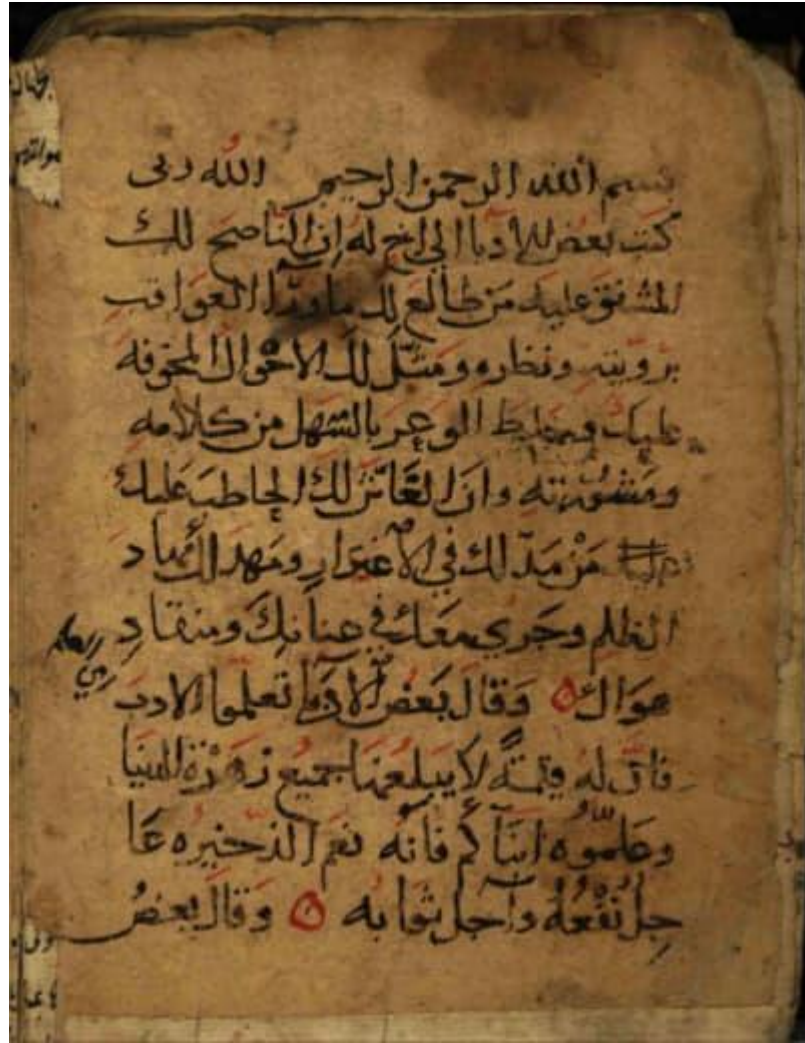 بسم الله الرحمن الرحيم الله ربى
كتب بعض الادبا الي اخ له ان الناصح لك
المشفق عليك من طالع لك ما ورآ العواقب
برويته ونظره ومثّل لك الاحوال المخوفه
عليك وخلط الوعر بالسهل من كلامه
ومشورته وانّ الغاشّ لك الحاطب عليك
مَنْ مدّ لك في الاغترارِ ومهد لك مهاد
الظلم وجري معك في عنانك ومنقادِ
هواك ن وقال بعض الادبآ تعلموا الادب
فانّ له قيمةً لا يبلغها جميع زهرة الدنيا
وعلّموه ابنآكم فانه نعم الذخيره عا
جل نفعه وآجل ثوابه ن وقال بعض